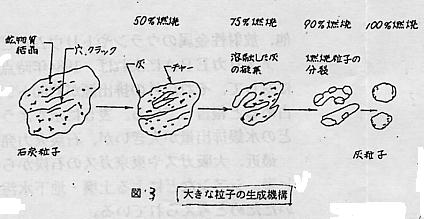 50%燃焼 75%燃焼 90%燃焼 100%燃焼
鉱物質
結晶
穴,クラック
灰
チャー
溶融した灰
の凝集
燃焼粒子の
分裂
石炭粒子
灰粒子
図 3 大きな粒子の生成機構